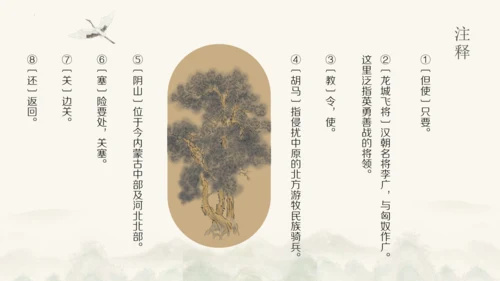 注释
①〔但使〕只要。
②〔龙城飞将〕汉朝名将李广，与匈奴作广。
这里泛指英勇善战的将领。
③〔教〕令，使。
④〔胡马〕指侵扰中原的北方游牧民族骑兵。
⑤〔阴山〕位于今内蒙古中部及河北北部。
⑥〔塞〕险要处，关塞。
⑦〔关〕边关。
⑧〔还〕返回。